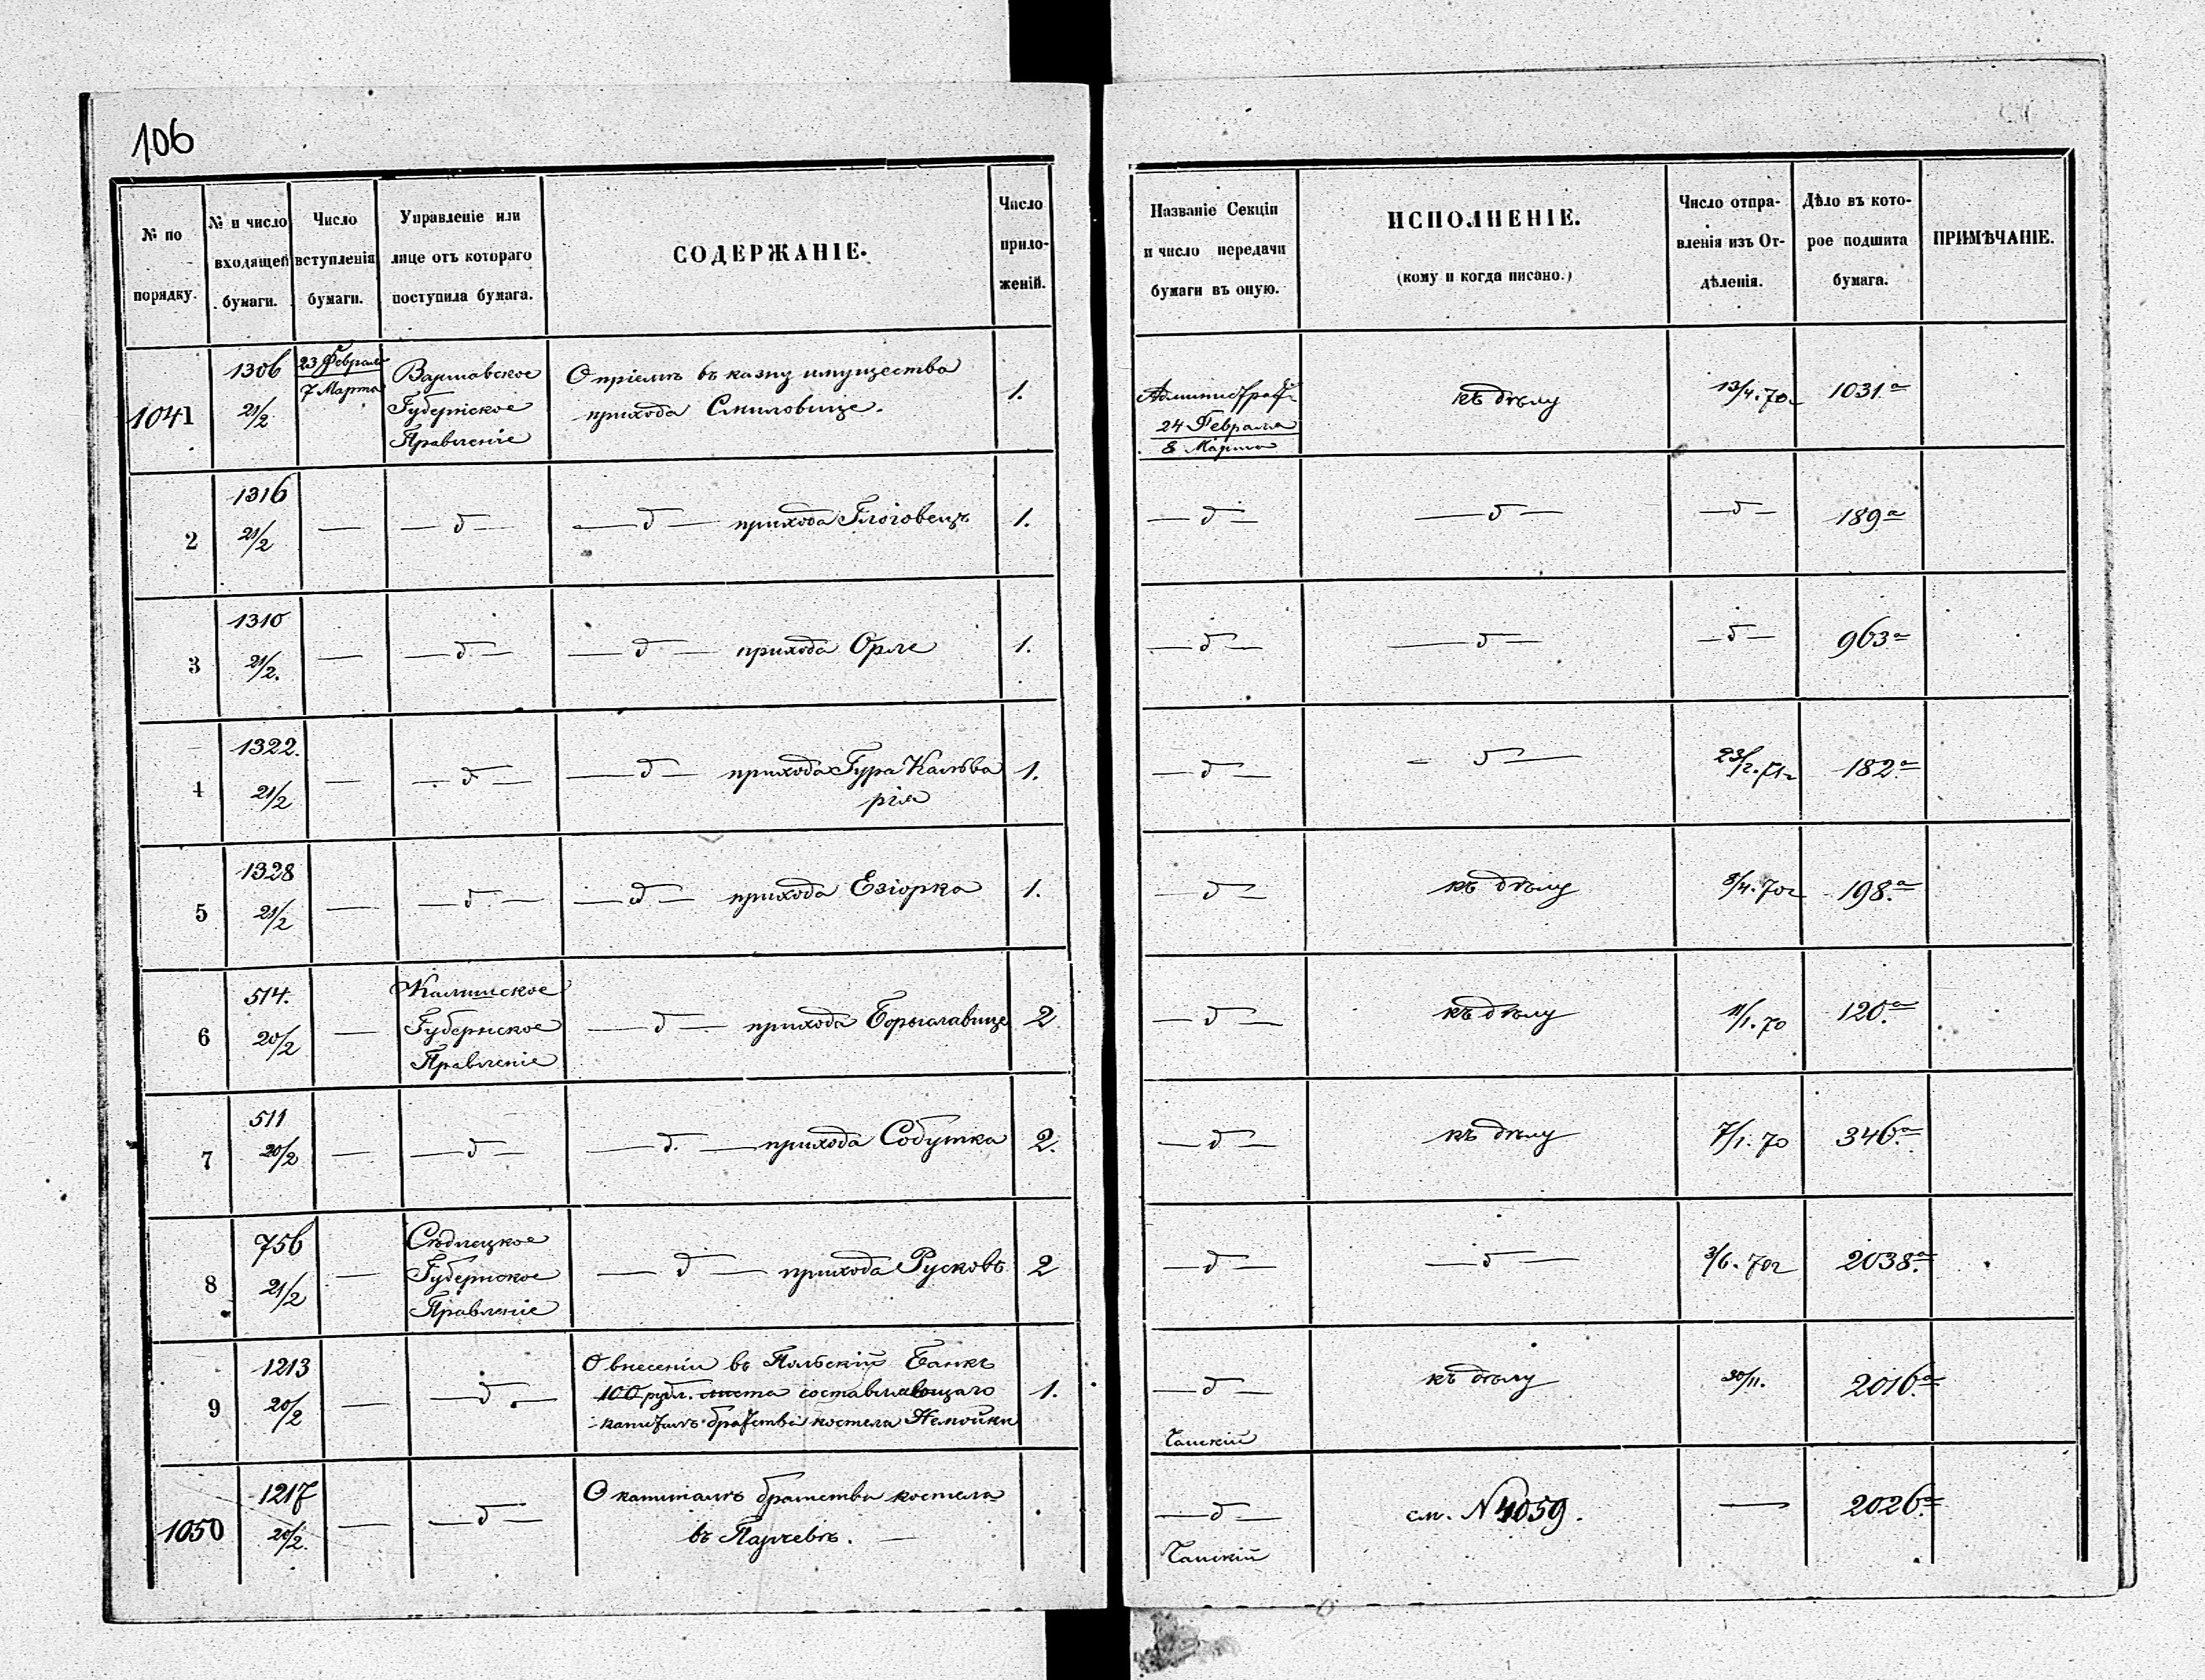 106
№ по порядку.
№ и число входящей бумаги.
Число вступленія бумаги.
Управленіе или лице отъ котораго поступила бумага.
СОДЕРЖАНІЕ.
Число приложеній.
Названіе Секціи и число передачи бумаги въ оную.
ИСПОЛНЕНІЕ.
(кому и когда писано.)
Число отправленія изъ Отдѣленія.
Дѣло въ которое подшита бумага.
ПРИМѢЧАНІЕ.
1041
1306
21/2
23 Февраля
7 Марта
Варшавское
Губернское
Правленіе
О пріемѣ въ казну имущества
прихода Смиловице.
1.
24 Февраля
8 Марта
къ дѣлу
13/4. 70
1031 а
2
1316
21/2
— д — — д — прихода Глоговецъ
1.
— д — — д — — д —
189 а
3
1310
21/2.
— д — — д — прихода Орле
1.
— д — — д — — д —
963 а
4
1322.
21/2
— д — — д — прихода Гура Кальва
рія
1.
— д — — д —
182. а
5
1328
21/2
— д — — д — прихода Езіорка
1.
— д — къ дѣлу
8/4. 70 г
198. а
6
514.
20/2
Калишское
Губернское
Правленіе
— д — прихода Борыславице
2
— д — къ дѣлу
11/1. 70
120. а
7
511
20/2
— д — — д. — прихода Собутка
2.
— д — къ дѣлу
7/1. 70
346. а
8
756
21/2
Сѣдлецкое
Губернское
Правленіе
— д — прихода Русковъ
2
— д — — д —
3/6. 70 г
2038. а
9
1213
20/2
— д —
О внесеніи въ Польскій Банкъ
100 рубл. листа составляющаго
капиталъ братства костела Немойки
1.
— д —
къ дѣлу
30/11.
2016. а
1050
1217
20/2.
— д —
О капиталѣ братства костела
въ Парчевѣ. —
— д —
см. N 4059.
—
2026. а